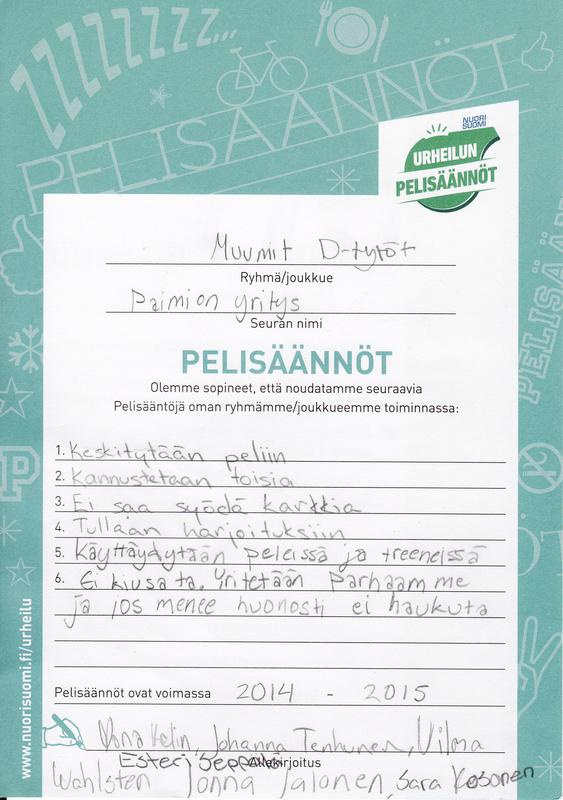 ZZZZZZZZ...
PELISÄÄNNÖT
NUORI
SUOMI
URHEILUN
PELISÄÄNNÖT
Muumit D-tytöt
Ryhmä/joukkue
Paimion yritys
Seuran nimi
PELISÄÄNNÖT
Olemme sopineet, että noudatamme seuraavia
Pelisääntöjä oman ryhmämme/joukkueemme toiminnassa:
1. Keskitytään peliin
2. Kannustetaan toisia
3. Ei saa syödä karkkia
4. Tullaan harjoituksiin
5. Käyttäydytään peleissä ja treeneissä
6. Ei kiusata. Yritetään Parhaamme
ja jos menee huonosti ei haukuta
Pelisäännöt ovat voimassa 2014 - 2015
Johanna Tenhunen, Vilma
Esteri Seppälä
Allekirjoitus
Wahlsten Jonna Jalonen, Sara Kosonen
www.nuorisuomi.fi/urheilu